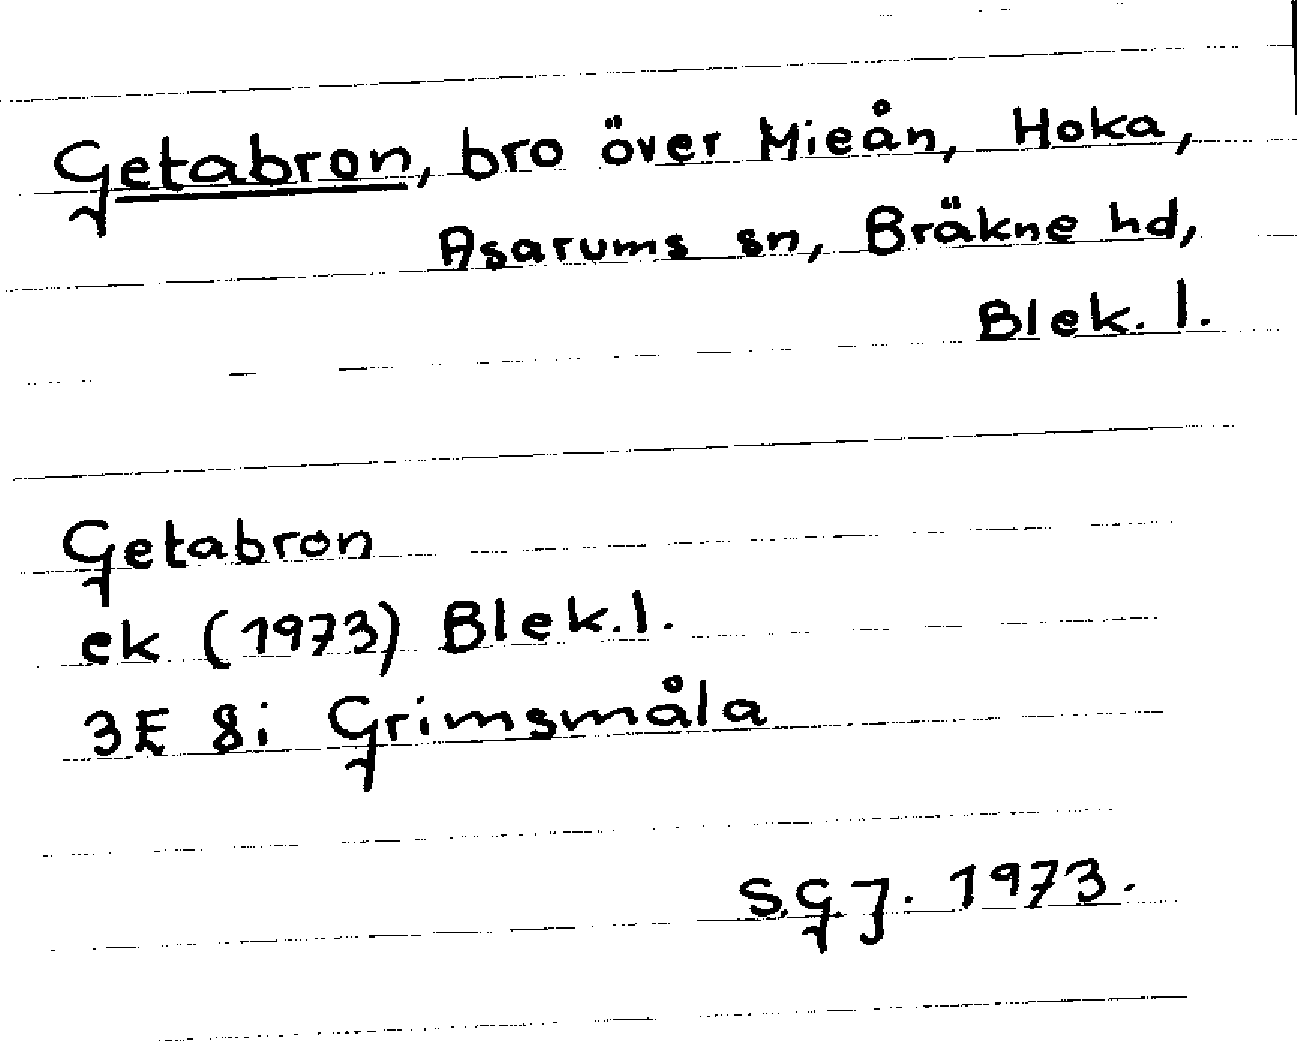 Getabron, bro över Mieån, Hoka,
Asarums sn, Bräkne hd,
Blek. l.
Getabron
ek (1973) Blek.l.
3E 8i Grimsmåla
S.G.J. 1973.